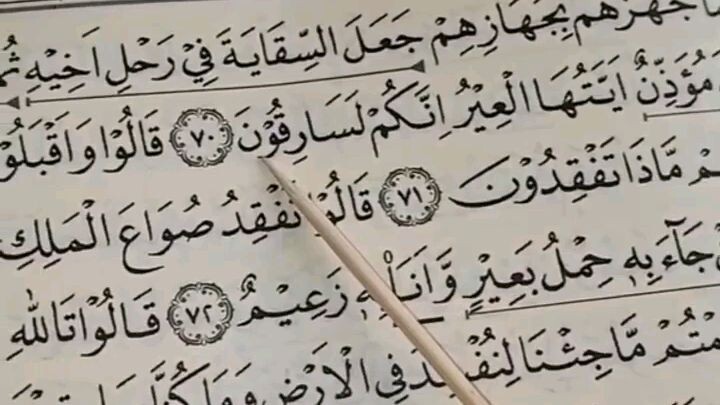 جَهَّزَهُمْ بِجَهَازِهِمْ جَعَلَ السِّقَايَةَ فِيْ رَحْلِ اَخِيْهِ ثُمَّ
مُؤَذِّنٌ اَيَّتُهَا الْعِيْرُ اِنَّكُمْ لَسَارِقُوْنَ ٧٠ قَالُوْا وَاَقْبَلُوْا
مَّاذَا تَفْقِدُوْنَ ٧١ قَالُوْا نَفْقِدُ صُوَاعَ الْمَلِكِ
جَآءَ بِهٖ حِمْلُ بَعِيْرٍ وَّاَنَا۠ بِهٖ زَعِيْمٌ ٧٢ قَالُوْا تَاللّٰهِ
مَّا جِئْنَا لِنُفْسِدَ فِى الْاَرْضِ وَمَا كُنَّا